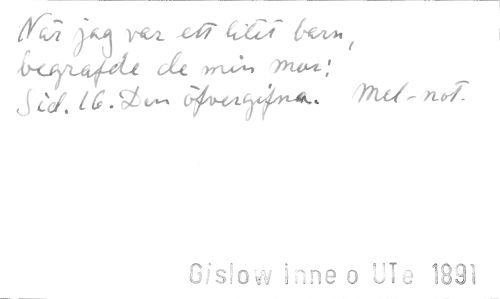 När jag var ett litet barn,
begrafde de min mor;
Sid. 16. Den öfvergifna. Mel-not.
Gislow inne o UTe 1891